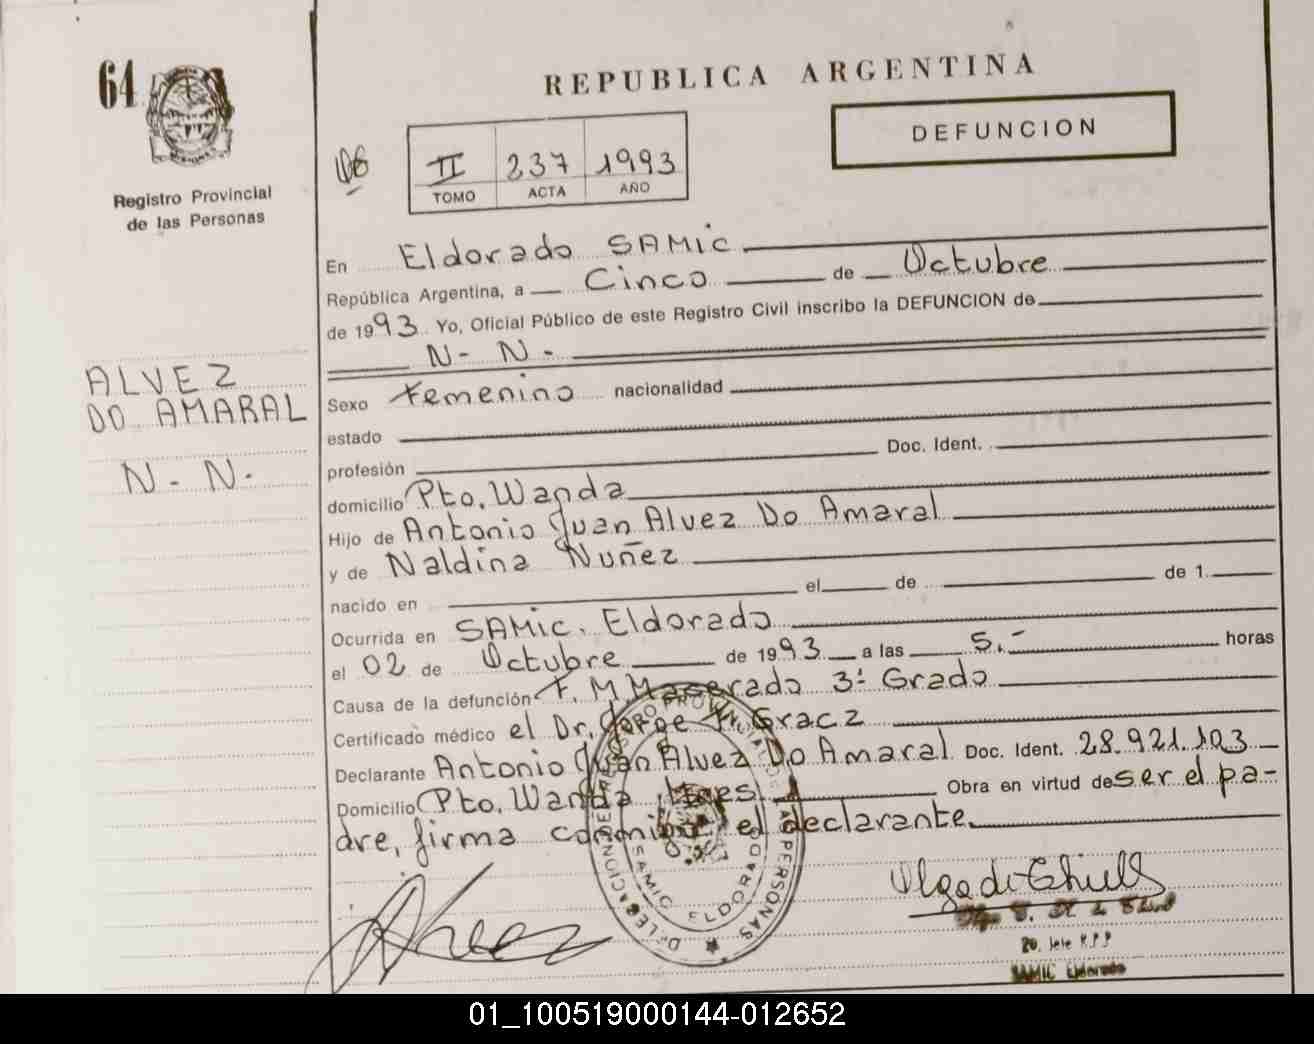 64
REPUBLICA ARGENTINA
DEFUNCION
II 237 1993
TOMO ACTA AÑO
Registro Provincial
de las Personas
En Eldorado SAMic
República Argentina, a Cinco de Octubre
de 1993 Yo, Oficial Público de este Registro Civil inscribo la DEFUNCION de
N- N.
ALVEZ
DO AMARAL
N- N.
Sexo Femenino nacionalidad
estado
profesión Doc. Ident.
domicilio Pto. Wanda
Hijo de Antonio Juan Alvez Do Amaral
y de Naldina Nuñez
nacido en el de de 1
Ocurrida en SAMic. Eldorado
el 02 de Octubre de 1993 a las 5.- horas
Causa de la defunción F. M. Maserado 3º Grado
Certificado médico el Dr. Jorge Gracz
Declarante Antonio Juan Alvez Do Amaral Doc. Ident. 28.921.103
Domicilio Pto. Wanda Obra en virtud de ser el pa-
dre, firma conmigo el declarante.
DELEGACION REGISTRO PROVINCIAL DE LAS PERSONAS
SAMIC ELDORADO
Alvez
Olga de
SAMIC Eldorado
01_100519000144-012652